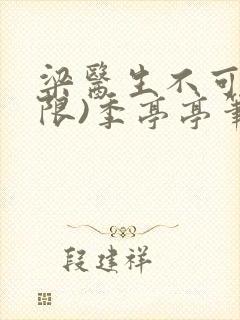 梁医生不可
限)季亭亭笔
段建祥